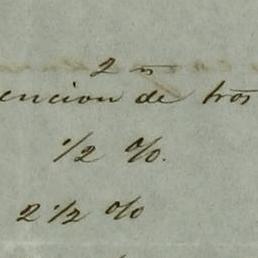 2 n
encion de tros
1/2 %.
2 1/2 %